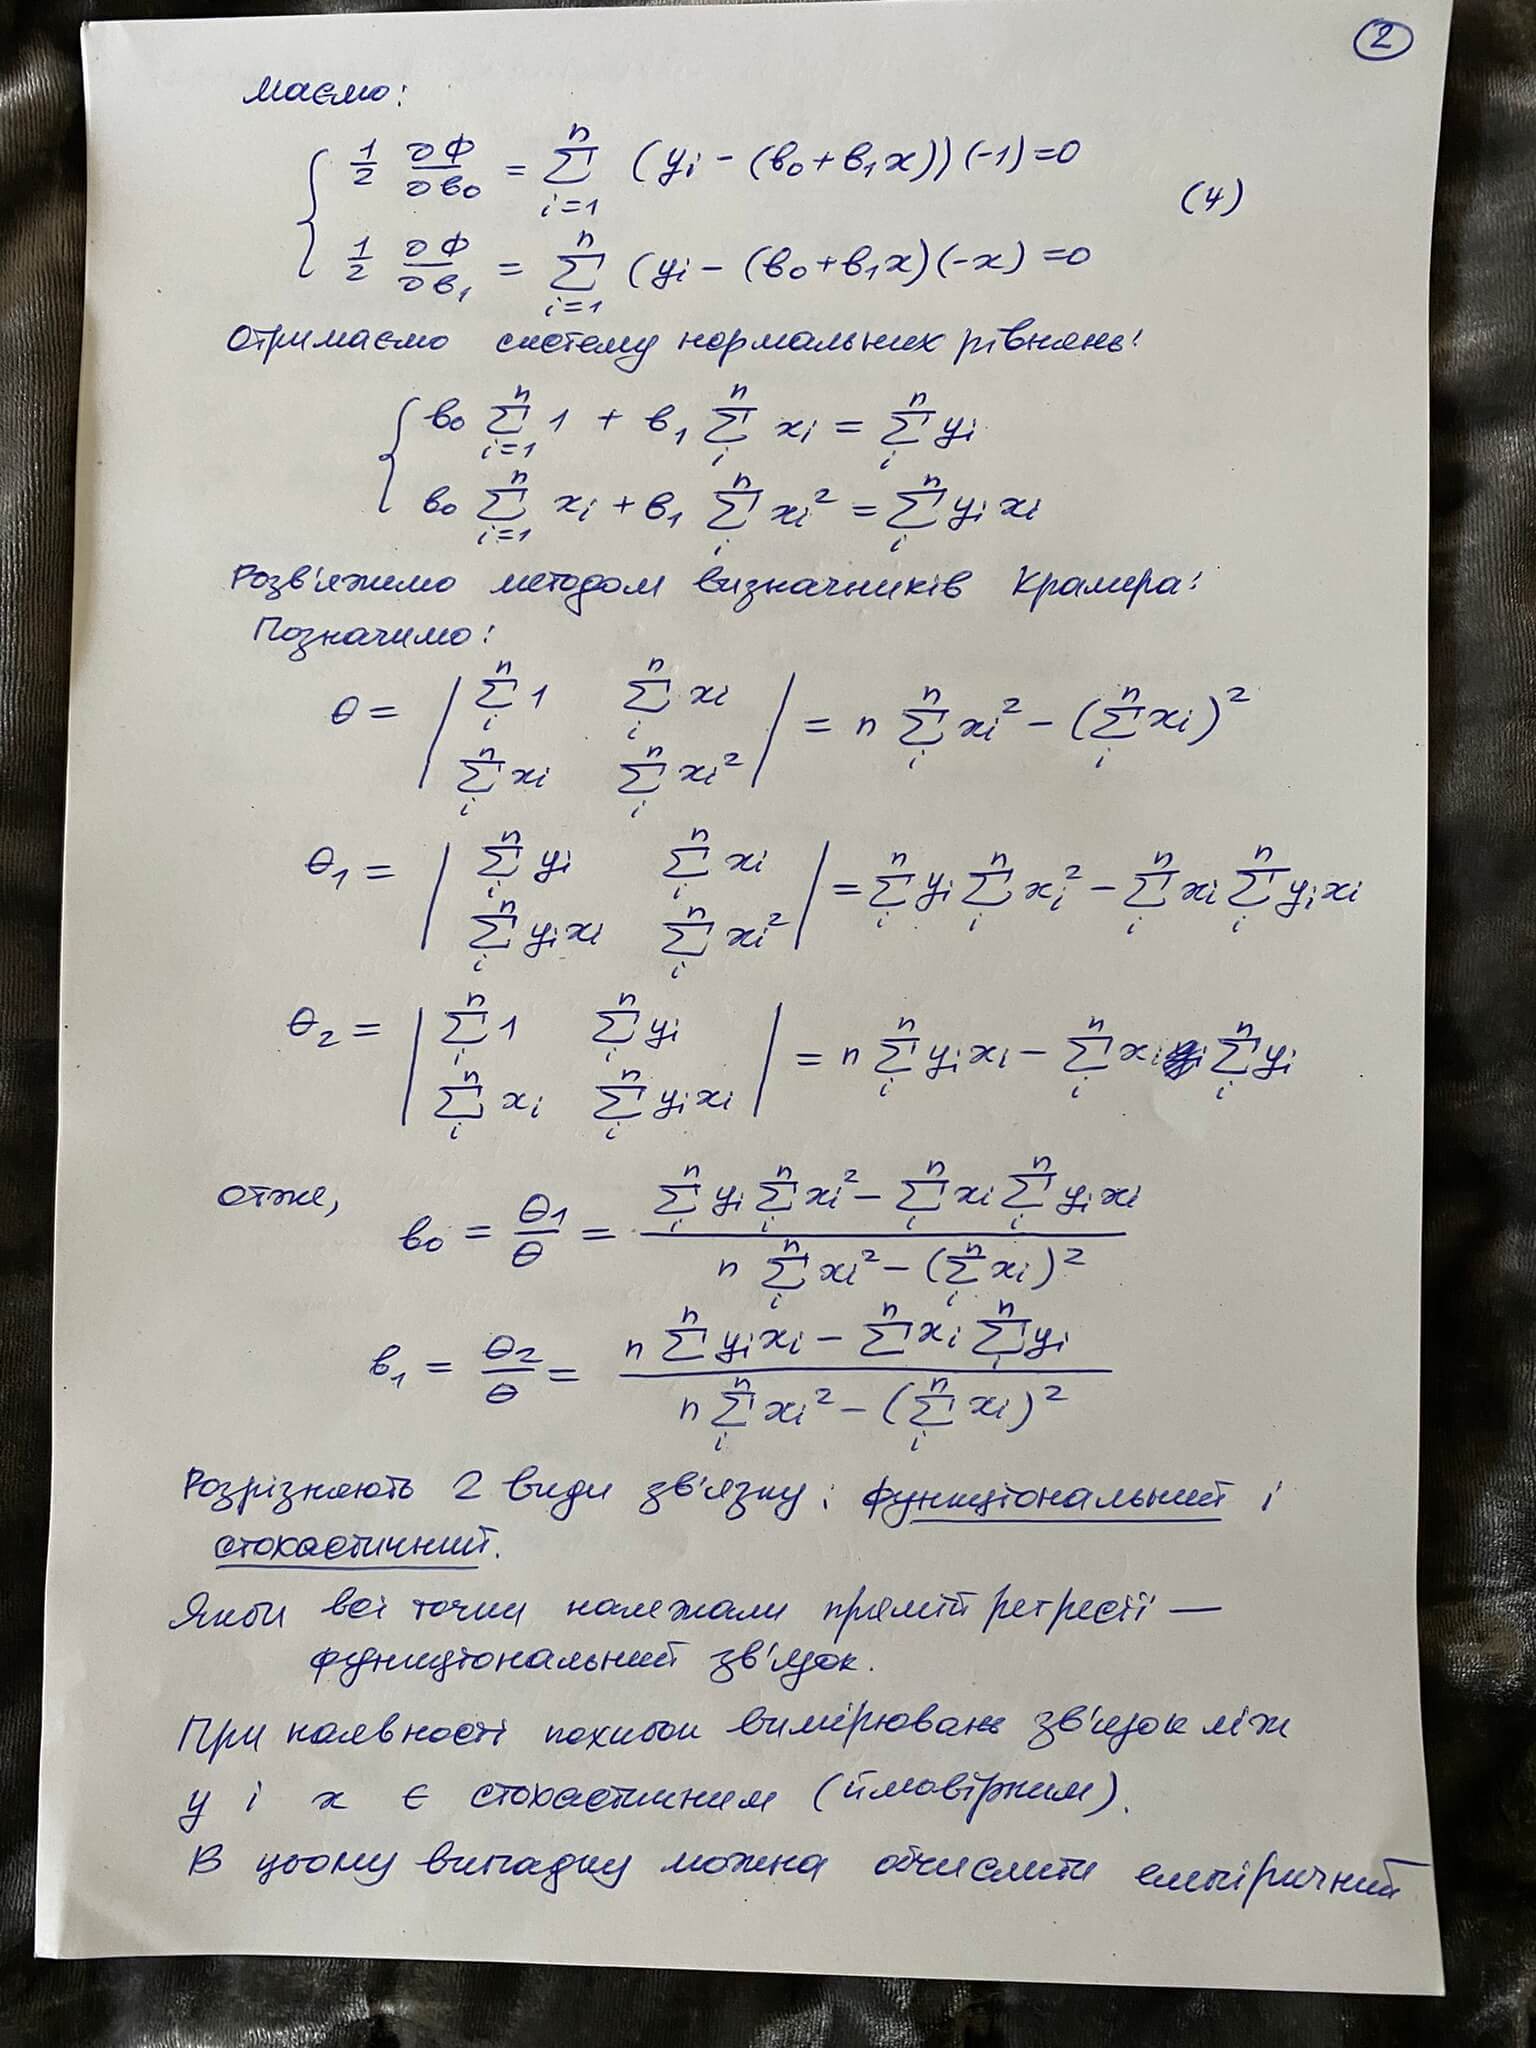 2
Маємо:
{ 1/2 ∂Ф/∂в₀ = Σ_{i=1}^{n} (yᵢ - (в₀+в₁x))(-1)=0
(4)
1/2 ∂Ф/∂в₁ = Σ_{i=1}^{n} (yᵢ - (в₀+в₁x)(-x) =0
Отримаємо систему нормальних рівнянь:
{ в₀ Σ_{i=1}^{n} 1 + в₁ Σ_{i}^{n} xᵢ = Σ_{i}^{n} yᵢ
в₀ Σ_{i=1}^{n} xᵢ + в₁ Σ_{i}^{n} xᵢ² = Σ_{i}^{n} yᵢxᵢ
Розв'яжимо методом визначників Крамера:
Позначимо:
θ = | Σ_{i}^{n} 1 Σ_{i}^{n} xᵢ | = n Σ_{i}^{n} xᵢ² - (Σ_{i}^{n} xᵢ)²
Σ_{i}^{n} xᵢ Σ_{i}^{n} xᵢ²
θ₁ = | Σ_{i}^{n} yᵢ Σ_{i}^{n} xᵢ | = Σ_{i}^{n} yᵢ Σ_{i}^{n} xᵢ² - Σ_{i}^{n} xᵢ Σ_{i}^{n} yᵢxᵢ
Σ_{i}^{n} yᵢxᵢ Σ_{i}^{n} xᵢ²
θ₂ = | Σ_{i}^{n} 1 Σ_{i}^{n} yᵢ | = n Σ_{i}^{n} yᵢxᵢ - Σ_{i}^{n} xᵢ Σ_{i}^{n} yᵢ
Σ_{i}^{n} xᵢ Σ_{i}^{n} yᵢxᵢ
Отже,
в₀ = θ₁/θ = (Σ_{i}^{n} yᵢ Σ_{i}^{n} xᵢ² - Σ_{i}^{n} xᵢ Σ_{i}^{n} yᵢxᵢ) / (n Σ_{i}^{n} xᵢ² - (Σ_{i}^{n} xᵢ)²)
в₁ = θ₂/θ = (n Σ^{n} yᵢxᵢ - Σ^{n} xᵢ Σ_{i}^{n} yᵢ) / (n Σ_{i}^{n} xᵢ² - (Σ_{i}^{n} xᵢ)²)
Розрізняють 2 види зв'язку: функціональний і
стохастичний.
Якби всі точки належали прямій регресії —
функціональний зв'язок.
При наявності похибок вимірювань зв'язок між
y і x є стохастичним (ймовірним).
В цьому випадку можна обчислити емпіричний